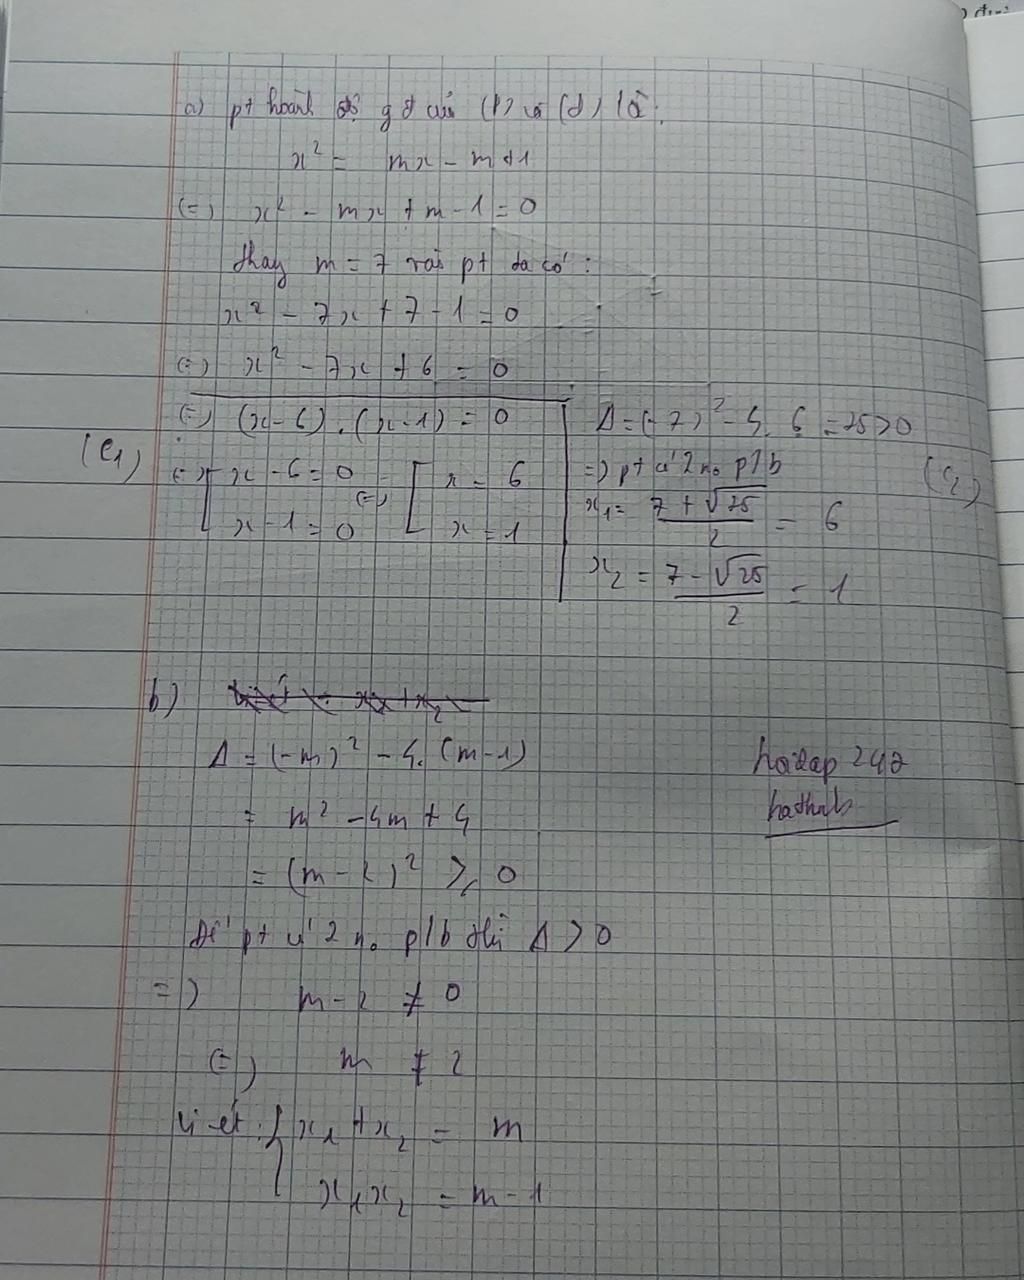 a) pt hoành độ gđ của (P) và (d) là:
x² = mx - m + 1
(=) x² - mx + m - 1 = 0
thay m = 7 vào pt ta có:
x² - 7x + 7 - 1 = 0
(=) x² - 7x + 6 = 0
(C₁)
(=) (x - 6) . (x - 1) = 0
(=) [ x - 6 = 0 (=) [ x = 6
x - 1 = 0 x = 1
(C₂)
Δ = (-7)² - 4. 6 = 25 > 0
=) pt có 2 no p/b
x₁ = (7 + √25)/2 = 6
x₂ = (7 - √25)/2 = 1
b)
Δ = (-m)² - 4. (m - 1)
= m² - 4m + 4
= (m - 2)² ≥ 0
Để pt có 2 no p/b thì Δ > 0
=) m - 2 ≠ 0
(=) m ≠ 2
Vi-ét: { x₁ + x₂ = m
x₁x₂ = m - 1
hoidap 247